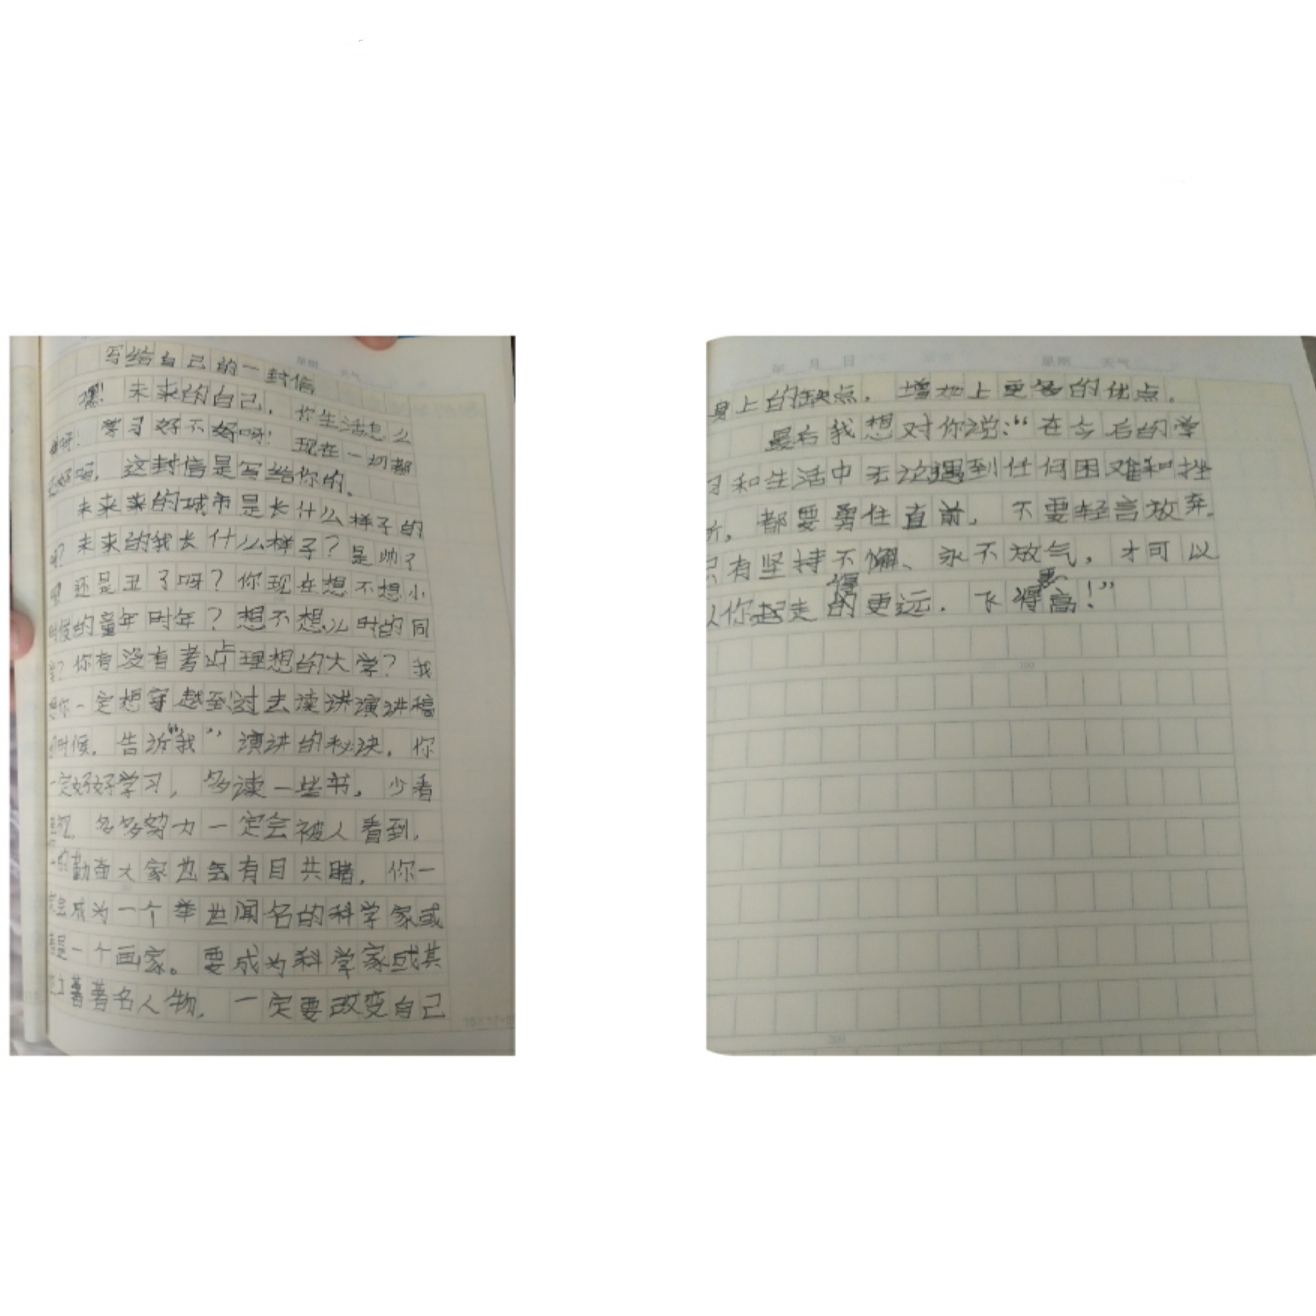 星期 天气
写给自己的一封信
嘿!未来的自己,你生活怎么
样呀!学习好不好呀!现在一切都
还好吗,这封信是写给你的。
未来来的城市是长什么样子的
?未来的我长什么样子?是帅了
还是丑了呀?你现在想不想小
时候的童年时年?想不想儿时的同
学?你有没有考上理想的大学?我
想你一定想穿越到过去读讲演讲稿
的时候,告诉“我”演讲的秘诀,你
一定好好学习,多读一些书,少看
多多努力一定会被人看到,
的勤奋大家也会有目共睹,你一
定会成为一个举世闻名的科学家或
者是一个画家。要成为科学家或其
著名人物,一定要改变自己
月 日 星期 天气
身上的缺点,增加上更多的优点。
最后我想对你说:“在今后的学
习和生活中无论遇到任何困难和挫
折,都要勇往直前,不要轻言放弃。
只有坚持不懈、永不放气,才可以
让你起走得更远.飞得更高!”